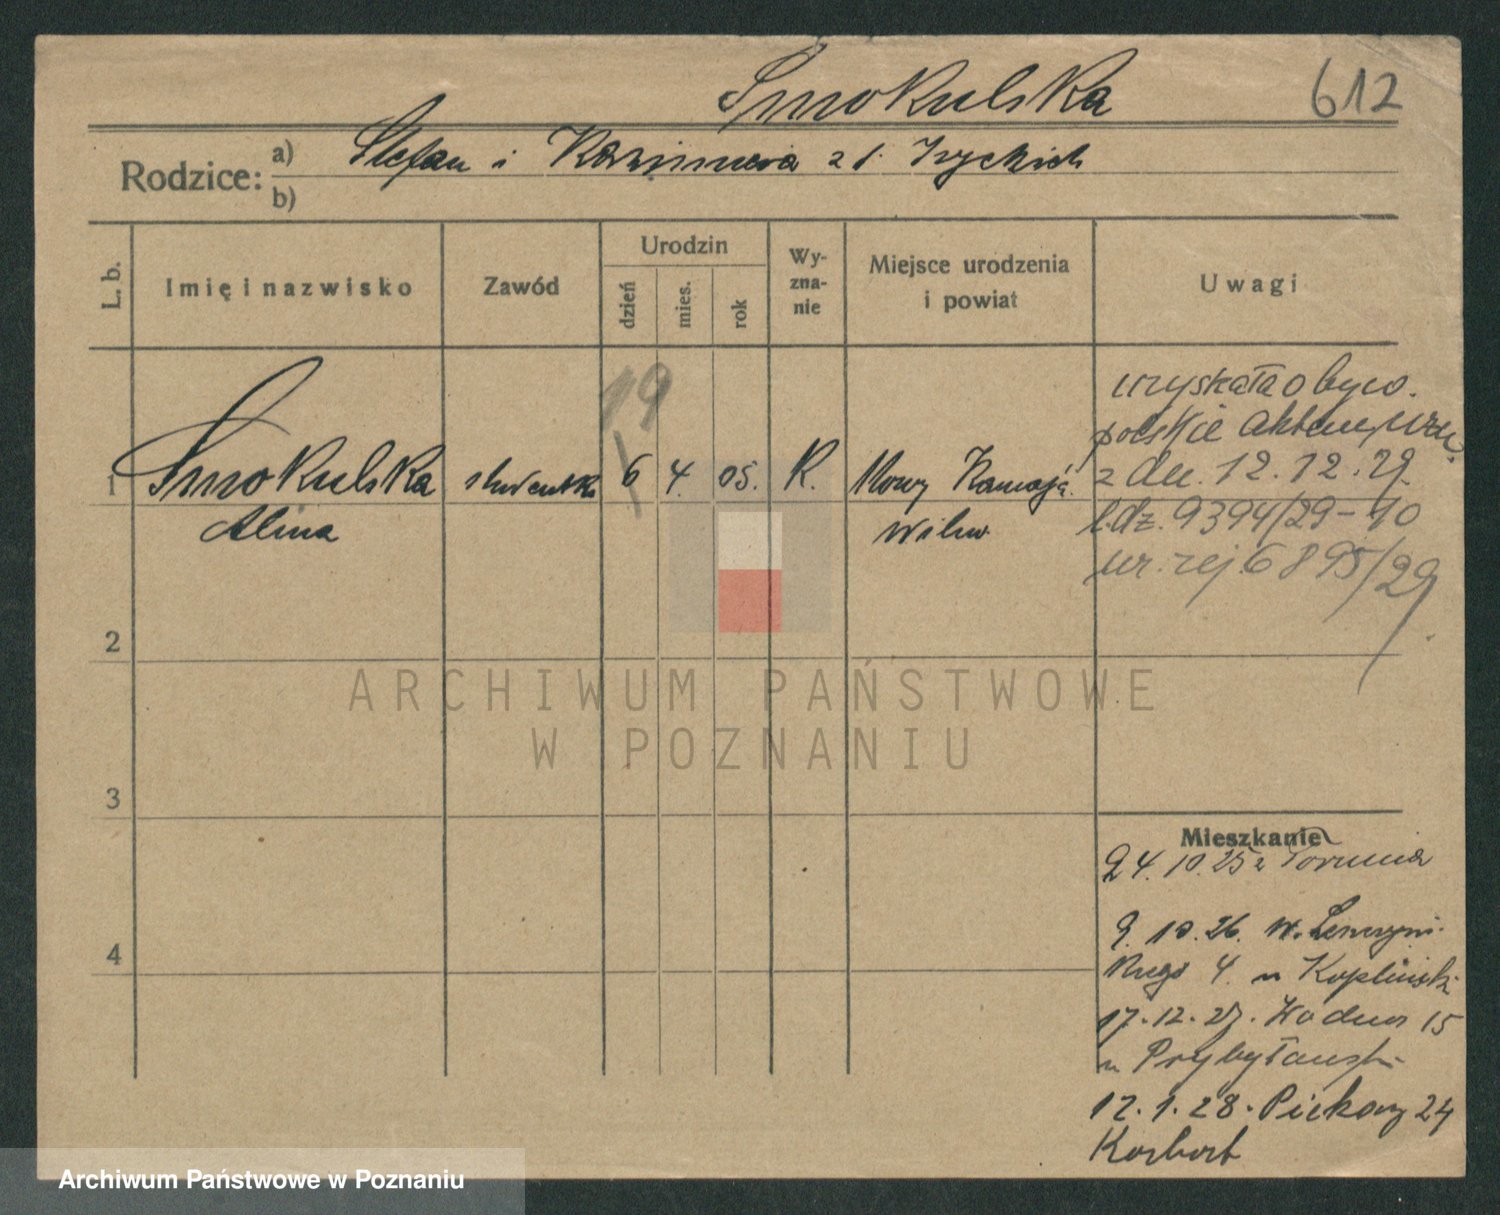 Smokulska
612
Rodzice:
a) Stefan i Kazimiera z d.
b)
L. b.
Imię i nazwisko
Zawód
Urodzin
dzień
mies.
rok
Wy-
zna-
nie
Miejsce urodzenia
i powiat
Uwagi
19
1 Smokulska studentka 6 4. 05. R. Nowy
Alina Wilno
uzyskała obyw.
polskie aktem
z dn. 12.12.29
l.dz. 9394/29-10
nr. rej. 6895/29
2
3
4
Mieszkanie
24. 10. 25 z Torunia
9. 10. 26. w.
4.
17.12.27. Wodna 15
12.1.28. Piekary 24
ARCHIWUM PAŃSTWOWE
W POZNANIU
Archiwum Państwowe w Poznaniu